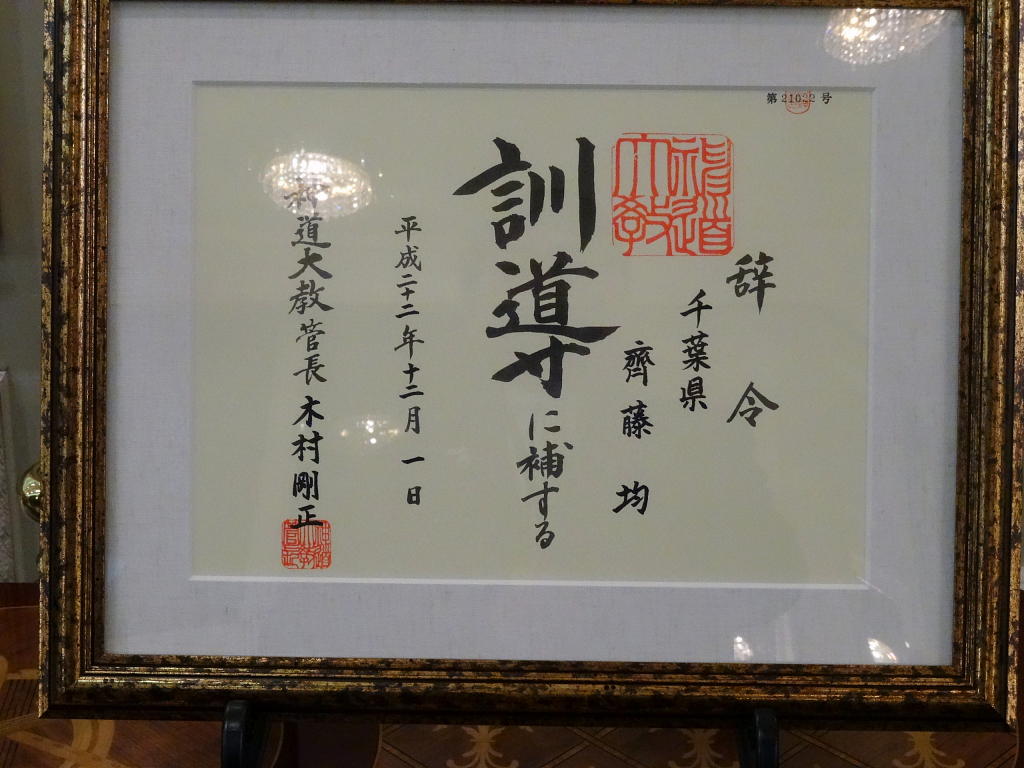 第21022号
神道大教
辞令
千葉県
齊藤均
訓導に補する
平成二十二年十二月一日
神道大教管長木村剛正